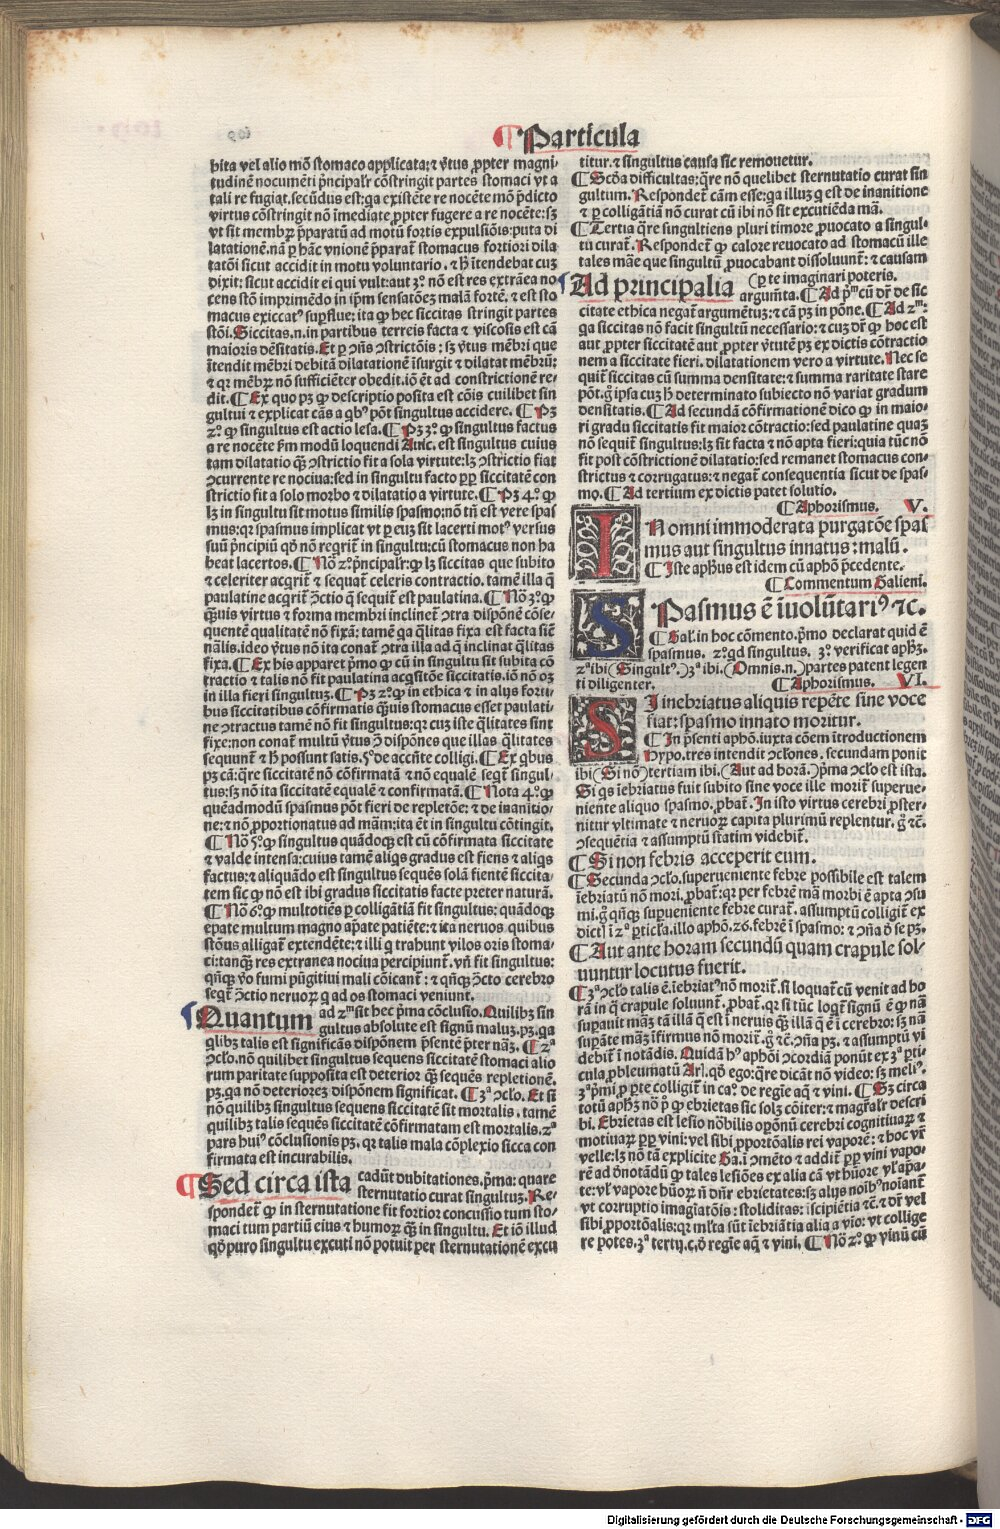 ¶Particula
bita vel alio mō stomaco applicata: ⁊ v̄tus ꝓpter magni
tudinē nocumēti p̄ncipalr̄ cōstringit partes stomaci vt a
tali re fugiat. secūdus est: qa existēte re nocēte mō p̄dicto
virtus cōstringit nō īmediate ꝓpter fugere a re nocēte: sꝫ
vt sit membꝝ p̄paratū ad motū fortis expulsiōis: puta di
lationē. nā ꝑ hāc vnionē p̄parat̄ stomacus fortiori dila
tatōi sicut accidit in motu voluntario. ⁊ h̄ ītendebat cuꝫ
dixit: sicut accidit ei qui vult: aut 3º nō est res extrāea no
cens stōi imprimēdo in ip̄m sensatōeꝫ malā fortē. ⁊ est sto
macus exiccatꝰ suꝑflue: ita ꝙ hec siccitas stringit partes
stōi. Siccitas .n. in partibus terreis facta ⁊ viscosis est cā
maioris dēsitatis. Et ꝑ ɔñs ɔstrictōis: sꝫ v̄tus mēbri que
ītendit mēbri debitā dilatationē īsurgit ⁊ dilatat mēbrū:
⁊ qꝛ mēbꝝ nō sufficiēter obedit. iō ēt ad constrictionē re-
dit. ¶ Ex quo pꝫ ꝙ descriptio posita est cōis cuilibet sin
gultui ⁊ explicat cās a qbꝰ pōt singultus accidere. ¶ Pꝫ
2º ꝙ singultus est actio lesa. ¶ Pꝫ 3º ꝙ singultus factus
a re nocēte ẜm modū loquendi Auic. est singultus cuius
tam dilatatio qꝫ̄ ɔstrictio fit a sola virtute: lꝫ ɔstrictio fiat
ɔcurrente re nociua: sed in singultu facto ꝓꝑ siccitatē con
strictio fit a solo morbo ⁊ dilatatio a virtute. ¶ Pꝫ 4º ꝙ
lꝫ in singultu sit motus similis spasmo: nō tn̄ est vere spas
mus: qꝛ spasmus implicat vt ꝑ eum sit lacerti motꝰ versus
suū p̄ncipiū qđ nō reꝗrit̄ in singultu: cū stomacus non ha
beat lacertos. ¶ Nō 2º p̄ncipalr̄: ꝙ lꝫ siccitas que subito
⁊ celeriter acꝗrit̄ ⁊ sequat̄ celeris contractio. tamē illa q̄
paulatine acꝗrit̄ ɔ̄ctio q̄ sequit̄ est paulatina. ¶ Nō 3º ꝙ
q̄uis virtus ⁊ forma membri inclinet̄ ɔtra dispōnē cōse-
quentē qualitatē nō fixā: tamē qa q̄litas fixa est facta siē
nālis. ideo v̄tus nō ita conat̄ ɔtra illa ad q̄ inclinat q̄litas
fixa. ¶ Ex his apparet p̄mo ꝙ cū in singultu sit subita cō
tractio ⁊ talis nō fit paulatina acꝗsitōe siccitatis. iō nō oꝫ
in illa fieri singultuꝫ. ¶ Pꝫ 2º ꝙ in ethica ⁊ in alijs forti-
bus siccitatibus cōfirmatis q̄uis stomacus esset paulati-
ne ɔtractus tamē nō fit singultus: qꝛ cuꝫ iste q̄litates sint
fixe: non conat̄ multū v̄tus ɔ̄ dispōnes que illas q̄litates
sequunt̄ ⁊ h̄ possunt satis. 5º de accn̄te colligi. ¶ Ex qbus
pꝫ cā: qre siccitatē nō cōfirmatā ⁊ nō equalē seqt̄ singul-
tus: sꝫ nō ita siccitatē equalē ⁊ confirmatā. ¶ Nota 4º ꝙ
quēadmodū spasmus pōt fieri de repletōe: ⁊ de inanitio-
ne: ⁊ nō ꝓportionatus ad mām: ita ēt in singultu cōtingit.
¶ Nō 5º ꝙ singultus quādoqꝫ est cū cōfirmata siccitate
⁊ valde intensa: cuius tamē aliqs gradus est fiens ⁊ aliqs
factus: ⁊ aliquādo est singultus sequēs solā fientē siccita-
tem sic ꝙ nō est ibi gradus siccitatis facte preter naturā.
¶ Nō 6º ꝙ multotiēs ꝑ colligātiā fit singultus: quādoqꝫ
epate multum magno ap̄ate patiēte: ⁊ ita neruos quibus
stōus alligat̄ extendēte: ⁊ illi q̄ trahunt vilos oris stoma-
ci: tanqꝫ̄ res extranea nociua percipiunt̄. vn̄ fit singultus:
qn̄qꝫ v̄o fumi pūgitiui mali cōicant̄: ⁊ qn̄qꝫ ɔ̄cto cerebro
seqt̄ ɔ̄ctio neruoꝝ q̄ ad os stomaci veniunt.
Quantum ad 2ᵐ sit hec p̄ma cōclusio. Quilibꝫ sin
gultus absolute est signū maluꝫ. pꝫ. qa
qlibꝫ talis est significās dispōnem p̄sentē p̄ter nāꝫ. ¶ 2ª
ɔclo. nō quilibet singultus sequens siccitatē stomaci alio
rum paritate supposita est deterior qꝫ̄ sequēs repletionē.
pꝫ. qa nō deterioreꝫ dispōnem significat. ¶ 3ª ɔclo. Et si
nō quilibꝫ singultus sequens siccitatē sit mortalis. tamē
quilibꝫ talis sequēs siccitatē cōfirmatam est mortalis. 2ª
pars huiꝰ cōclusionis pꝫ. qꝛ talis mala cōplexio sicca con
firmata est incurabilis.
¶Sed circa ista cadūt dubitationes. p̄ma: quare
sternutatio curat singultuꝫ. Re-
spondet̄ ꝙ in sternutatione fit fortior concussio tum sto-
maci tum partiū eius ⁊ humoꝝ qꝫ̄ in singultu. Et iō illud
qđ puro singultu excuti nō potuit per sternutationē excu
titur. ⁊ singultus causa sic remouetur.
¶ Scđa difficultas: qre nō quelibet sternutatio curat sin
gultum. Respondet̄ cām esse: qa illuꝫ q̄ est de inanitione
⁊ ꝑ colligātiā nō curat cū ibi nō sit excutiēda mā.
¶ Tertia qre singultiens pluri timore ꝓuocato a singul-
tu curat̄. Respondet̄ ꝙ calore reuocato ad stomacū ille
tales māe que singultū ꝓuocabant dissoluunt̄: ⁊ causam
Ad principalia (ꝑ te imaginari poteris.
argum̄ta. ¶ Ad p̄ᵐ cū dr̄ de sic
citate ethica negat̄ argumētuꝫ: ⁊ cā pꝫ in pōne. ¶ Ad 2ᵐ:
qa siccitas nō facit singultū necessario: ⁊ cuꝫ dr̄ ꝙ hoc est
aut ꝓpter siccitatē aut ꝓpter v̄tutē pꝫ ex dictis cōtractio
nem a siccitate fieri. dilatationem vero a virtute. Nec se
quit̄ siccitas cū summa densitate: ⁊ summa raritate stare
pōt. ḡ ipsa cuꝫ h̄ determinato subiecto nō variat gradum
densitatis. ¶ Ad secundā cōfirmationē dico ꝙ in maio-
ri gradu siccitatis fit maior cōtractio: sed paulatine quaꝫ
nō sequit̄ singultus: lꝫ sit facta ⁊ nō apta fieri: quia tūc nō
fit post cōstrictionē dilatatio: sed remanet stomacus con-
strictus ⁊ corrugatus: ⁊ negat̄ consequentia sicut de spas-
mo. ¶ Ad tertium ex dictis patet solutio.
¶ Aphorismus. V.
IN omni immoderata purgatōe spas
mus aut singultus innatus: malū.
¶ Iste aph̄us est idem cū aphō p̄cedente.
¶ Commentum Galieni.
SPasmus ē īuolūtariꝰ ⁊c.
¶ Gal. in hoc cōmento. p̄mo declarat quid ē
spasmus. 2º qd singultus. 3º verificat aph̄ꝫ.
2ª ibi (Singultꝰ.) 3ª ibi. (Omnis .n.) partes patent legen
ti diligenter. ¶ Aphorismus. VI.
SI inebriatus aliquis repēte sine voce
fiat: spasmo innato moritur.
¶ In p̄senti aphō. iuxta cōem ītroductionem
Hypo. tres intendit ɔclōnes. secundam ponit
ibi (Si nō) tertiam ibi. (Aut ad horā.) p̄ma ɔclo est ista.
Si qs īebriatus fuit subito sine voce ille morit̄ superue-
niente aliquo spasmo. ꝓbat̄. In isto virtus cerebri ꝓster-
nitur vltimate ⁊ neruoꝝ capita plurimū replentur. ḡ ⁊c̄.
ɔsequētia ⁊ assumptū statim videbit̄.
¶ Si non febris acceperit eum.
¶ Secunda ɔclo. superueniente febre possibile est talem
īebriatū nō mori. ꝓbat̄: qꝛ per febrē mā morbi ē apta ɔsu
mi. ḡ qn̄qꝫ supueniente febre curat̄. assumptū colligit̄ ex
dictꝭ ī 2ª ꝑticƚa. illo aphō. 26. febrē ī spasmo: ⁊ ɔn̄a đ se pꝫ.
¶ Aut ante horam secundū quam crapule sol-
uuntur locutus fuerit.
¶ 3ª ɔclo talis ē. īebriatꝰ nō morit̄. si loquat̄ cū venit ad ho
rā in q̄ crapule soluunt̄. ꝓbat̄. qꝛ si tūc loqt̄ signū ē ꝙ nā
supauit māꝫ tā illā q̄ est ī neruis qꝫ̄ illā q̄ ē ī cerebro: sꝫ nā
supāte māꝫ īfirmus nō morit̄. ḡ ⁊c̄. ɔn̄a pꝫ. ⁊ assumptū vi
debit̄ ī notādis. Quidā hꝰ aphōi ɔcordiā ponūt ex 3ª ꝑti-
cula ꝓbleumatū Arl. qđ ego: qre dicāt nō video: sꝫ meliꝰ.
3ª p̄mi ꝓ ꝑte colligit̄ in caº. de regīe aq̄ ⁊ vini. ¶ Sꝫ circa
totū aph̄ꝫ nō pº ꝙ ebrietas sic solꝫ cōiter: ⁊ magr̄alr̄ descri
bi. Ebrietas est lesio nōbilis oꝑōnū cerebri cognitiuaꝝ ⁊
motiuaꝝ ꝓꝑ vini: vel sibi ꝓportōalis rei vaporē: ⁊ hoc vr̄
velle: lꝫ nō tā explicite Ga. ī ɔmēto ⁊ addit̄ ꝓꝑ vini vapo-
rē ad đnotādū ꝙ tales lesiōes ex alia cā vt hūore vƚ apa-
te: vƚ vapore hūoꝝ n̄ dn̄r ebrietates: sꝫ alijs noībꝰ noīant̄
vt corrupt. imagiatōis: stoliditas: īscipiētia ⁊c̄. ⁊ dr̄ vel
sibi ꝓportōalis: qꝛ mƚta sūt īebriātia alia a vīo: vt collige
re potes. 3ª tertij. c. đ regīe aq̄ ⁊ vini. ¶ Nō 2º ꝙ vinū cū
Digitalisierung gefördert durch die Deutsche Forschungsgemeinschaft - DFG